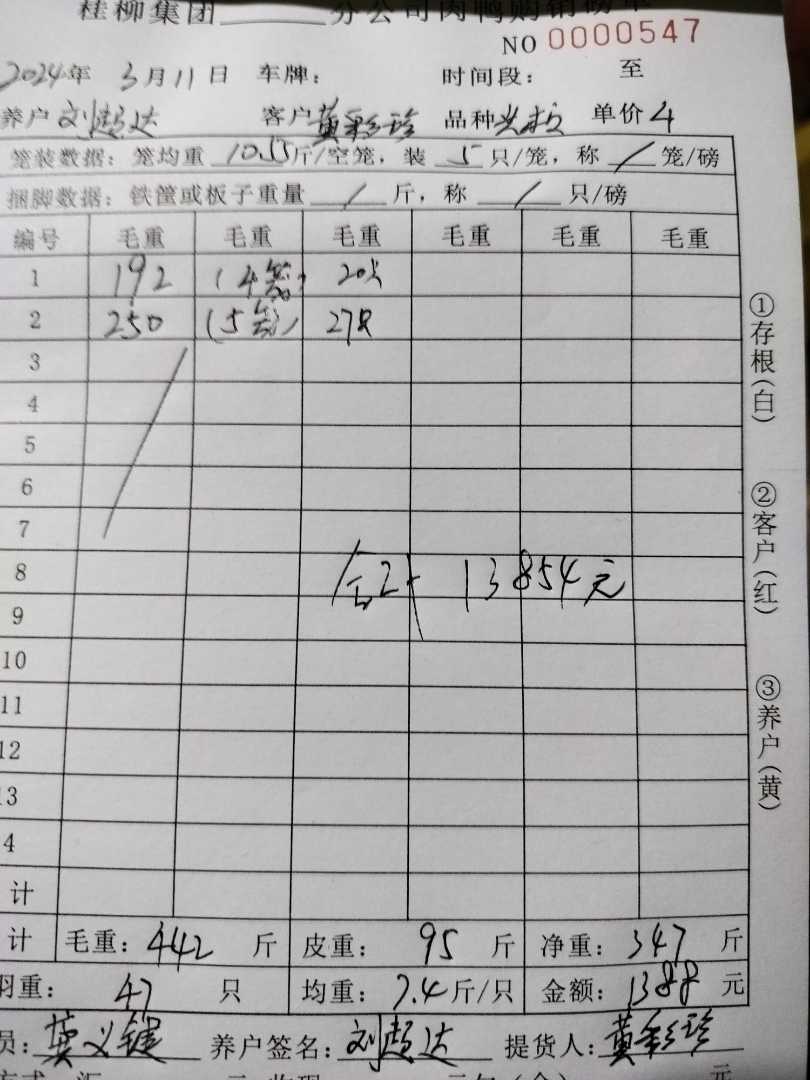 桂柳集团______分公司肉鸭购销磅单
NO 0000547
2024年 3月11日 车牌: 时间段: 至
养户 刘超达 客户 黄彩珍 品种 单价 4
笼装数据: 笼均重 10.55斤/空笼, 装 5 只/笼, 称 / 笼/磅
捆脚数据: 铁筐或板子重量 / 斤, 称 / 只/磅
编号 毛重 毛重 毛重 毛重 毛重 毛重
1 192 (4笼) 20只
2 250 (5笼) 27只
3
4
5
6
7
8 合计 13854元
9
10
11
12
13
4
计
计 毛重: 442 斤 皮重: 95 斤 净重: 347 斤
羽重: 47 只 均重: 7.4斤/只 金额: 1388 元
员: 龚义键 养户签名: 刘超达 提货人: 黄彩珍
①存根(白)
②客户(红)
③养户(黄)